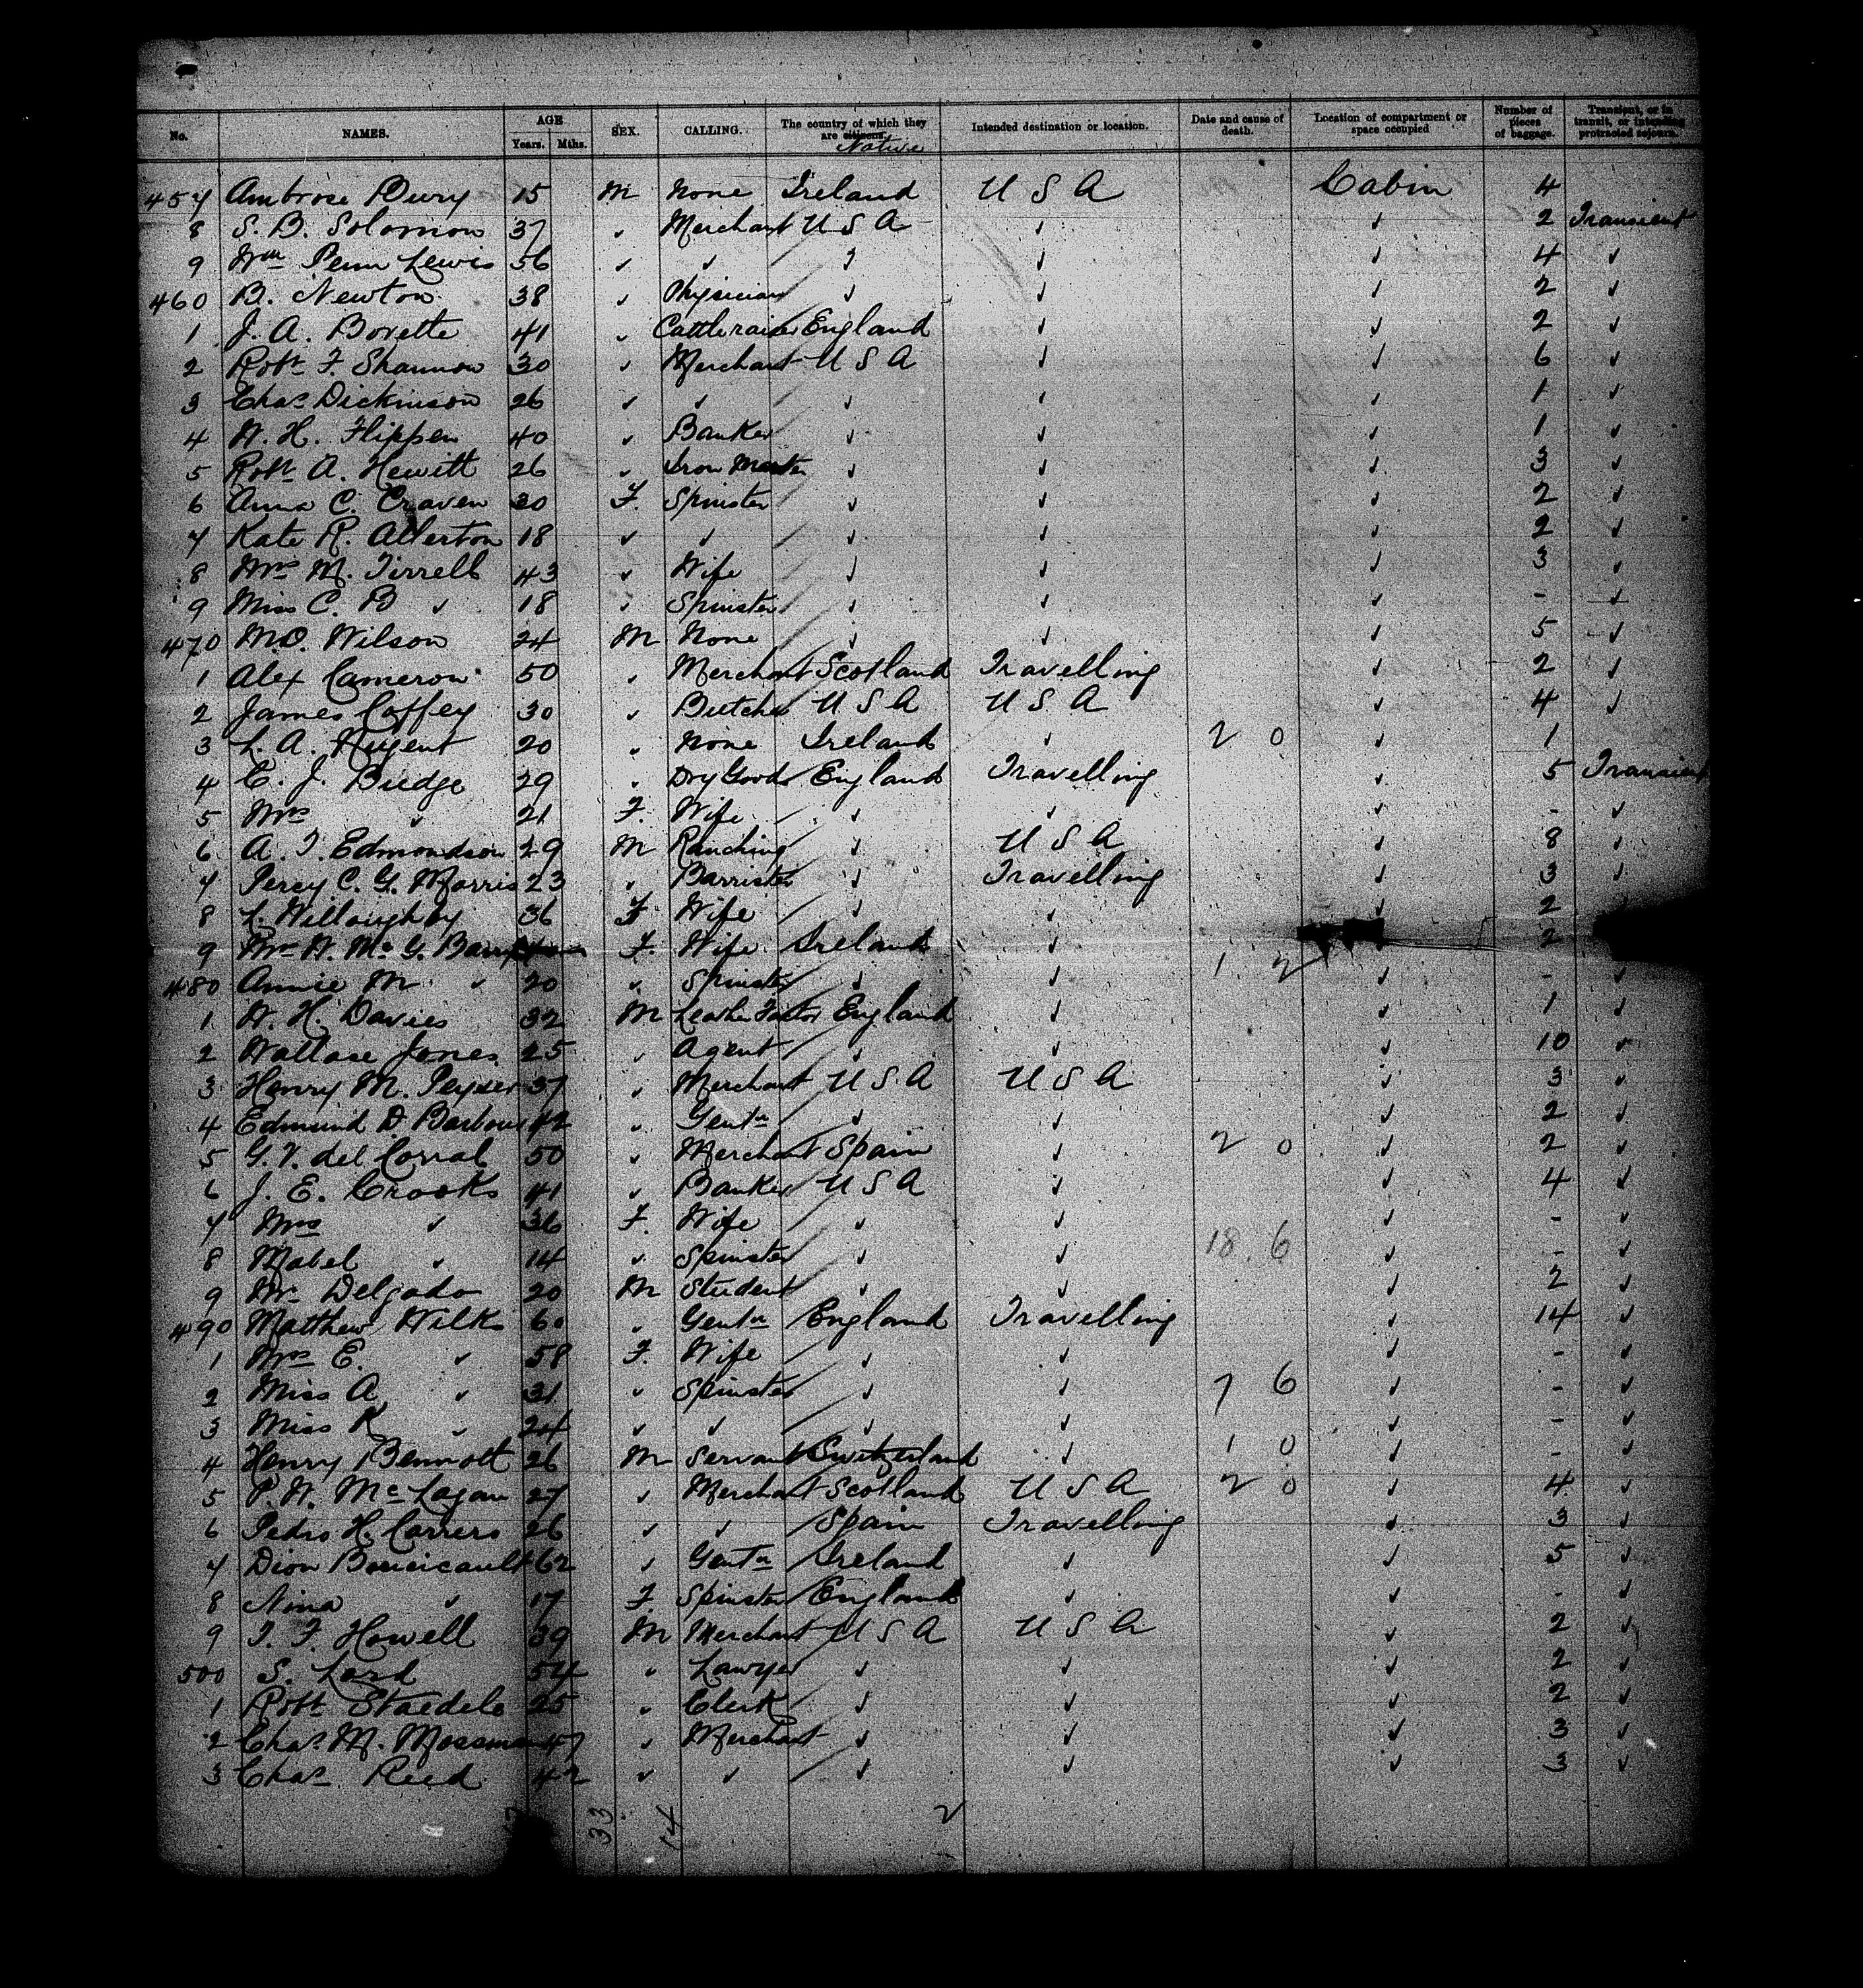 No. NAMES. AGE Years. Mths. SEX. CALLING. The country of which they are citizens. Native Intended destination or location. Date and cause of death. Location of compartment or space occupied Number of pieces of baggage. Transient, or in transit, or intending protracted sojourn.
457 Ambrose Dury 15 M None Ireland U S A Cabin 4
8 S. B. Solomon 37 ✓ Merchant U S A ✓ ✓ 2 Transient
9 Wm Penn Lewis 56 ✓ ✓ ✓ ✓ ✓ 4 ✓
460 B. Newton 38 ✓ Physician ✓ ✓ ✓ 2 ✓
1 J. A. Bovette 41 ✓ Cattle raiser England ✓ ✓ 2 ✓
2 Robt F. Shannon 30 ✓ Merchant U S A ✓ ✓ 6 ✓
3 Chas Dickinson 26 ✓ ✓ ✓ ✓ ✓ 1 ✓
4 W. H. Flippen 40 ✓ Banker ✓ ✓ ✓ 1 ✓
5 Robt A. Hewitt 26 ✓ Iron Master ✓ ✓ ✓ 3 ✓
6 Anna C. Craven 30 F. Spinster ✓ ✓ ✓ 2 ✓
7 Kate R. Allerton 18 ✓ ✓ ✓ ✓ ✓ 2 ✓
8 Mrs M. Tirrell 43 ✓ Wife ✓ ✓ ✓ 3 ✓
9 Miss C. B ✓ 18 ✓ Spinster ✓ ✓ ✓ - ✓
470 M.O. Wilson 24 M None ✓ ✓ ✓ 5 ✓
1 Alex Cameron 50 ✓ Merchant Scotland Travelling ✓ 2 ✓
2 James Coffey 30 ✓ Butcher U S A U S A ✓ 4 ✓
3 L. A. Nugent 20 ✓ None Ireland ✓ 2 0 ✓ 1
4 C. J. Budge 29 ✓ Dry Goods England Travelling ✓ 5 Transient
5 Mrs ✓ 21 F. Wife ✓ ✓ ✓ - ✓
6 A. T. Edmondson 29 M Ranching ✓ U S A ✓ 8 ✓
7 Percy C. G. Morris 23 ✓ Barrister ✓ Travelling ✓ 3 ✓
8 L. Willoughby 36 F Wife ✓ ✓ ✓ 2
9 Mrs W. Mc G. Barry F. Wife Ireland ✓ 2
480 Annie M ✓ 20 ✓ Spinster ✓ ✓ 1 2 ✓ - ✓
1 W. H. Davies 32 M Leather Factor England ✓ ✓ 1 ✓
2 Wallace Jones 25 ✓ Agent ✓ ✓ ✓ 10 ✓
3 Henry M. Peyser 37 ✓ Merchant U S A U S A ✓ 3 ✓
4 Edmund D. Barbour 42 ✓ Gentn ✓ ✓ ✓ 2 ✓
5 G. V. del Corral 50 ✓ Merchant Spain ✓ 2 0 ✓ 2 ✓
6 J. E. Crooks 41 ✓ Banker U S A ✓ ✓ 4 ✓
7 Mrs ✓ 36 F. Wife ✓ ✓ ✓ - ✓
8 Mabel ✓ 14 ✓ Spinster ✓ ✓ 18 6 ✓ - ✓
9 Mr Delgado 20 M Student ✓ ✓ ✓ 2 ✓
490 Matthew Wilks 60 ✓ Gentn England Travelling ✓ 14 ✓
1 Mrs E. ✓ 58 F. Wife ✓ ✓ ✓ - ✓
2 Miss A ✓ 31 ✓ Spinster ✓ ✓ 7 6 ✓ - ✓
3 Miss K ✓ 24 ✓ ✓ ✓ ✓ ✓ - ✓
4 Henry Bennott 26 M Servant Switzerland ✓ 1 0 ✓ - ✓
5 P. W. McLagan 27 ✓ Merchant Scotland U S A 2 0 ✓ 4 ✓
6 Pedro H. Carrero 26 ✓ ✓ Spain Travelling ✓ 3 ✓
7 Dion Boucicault 62 ✓ Gentn Ireland ✓ ✓ 5 ✓
8 Nina ✓ 17 F. Spinster England ✓ ✓ - ✓
9 T. F. Howell 39 M Merchant U S A U S A ✓ 2 ✓
500 S. Lord 54 ✓ Lawyer ✓ ✓ ✓ 2 ✓
1 Robt Staedele 25 ✓ Clerk ✓ ✓ ✓ 2 ✓
2 Chas M. Mossman 47 ✓ Merchant ✓ ✓ ✓ 3 ✓
3 Chas Reed 42 ✓ ✓ ✓ ✓ ✓ 3 ✓
33 14 2